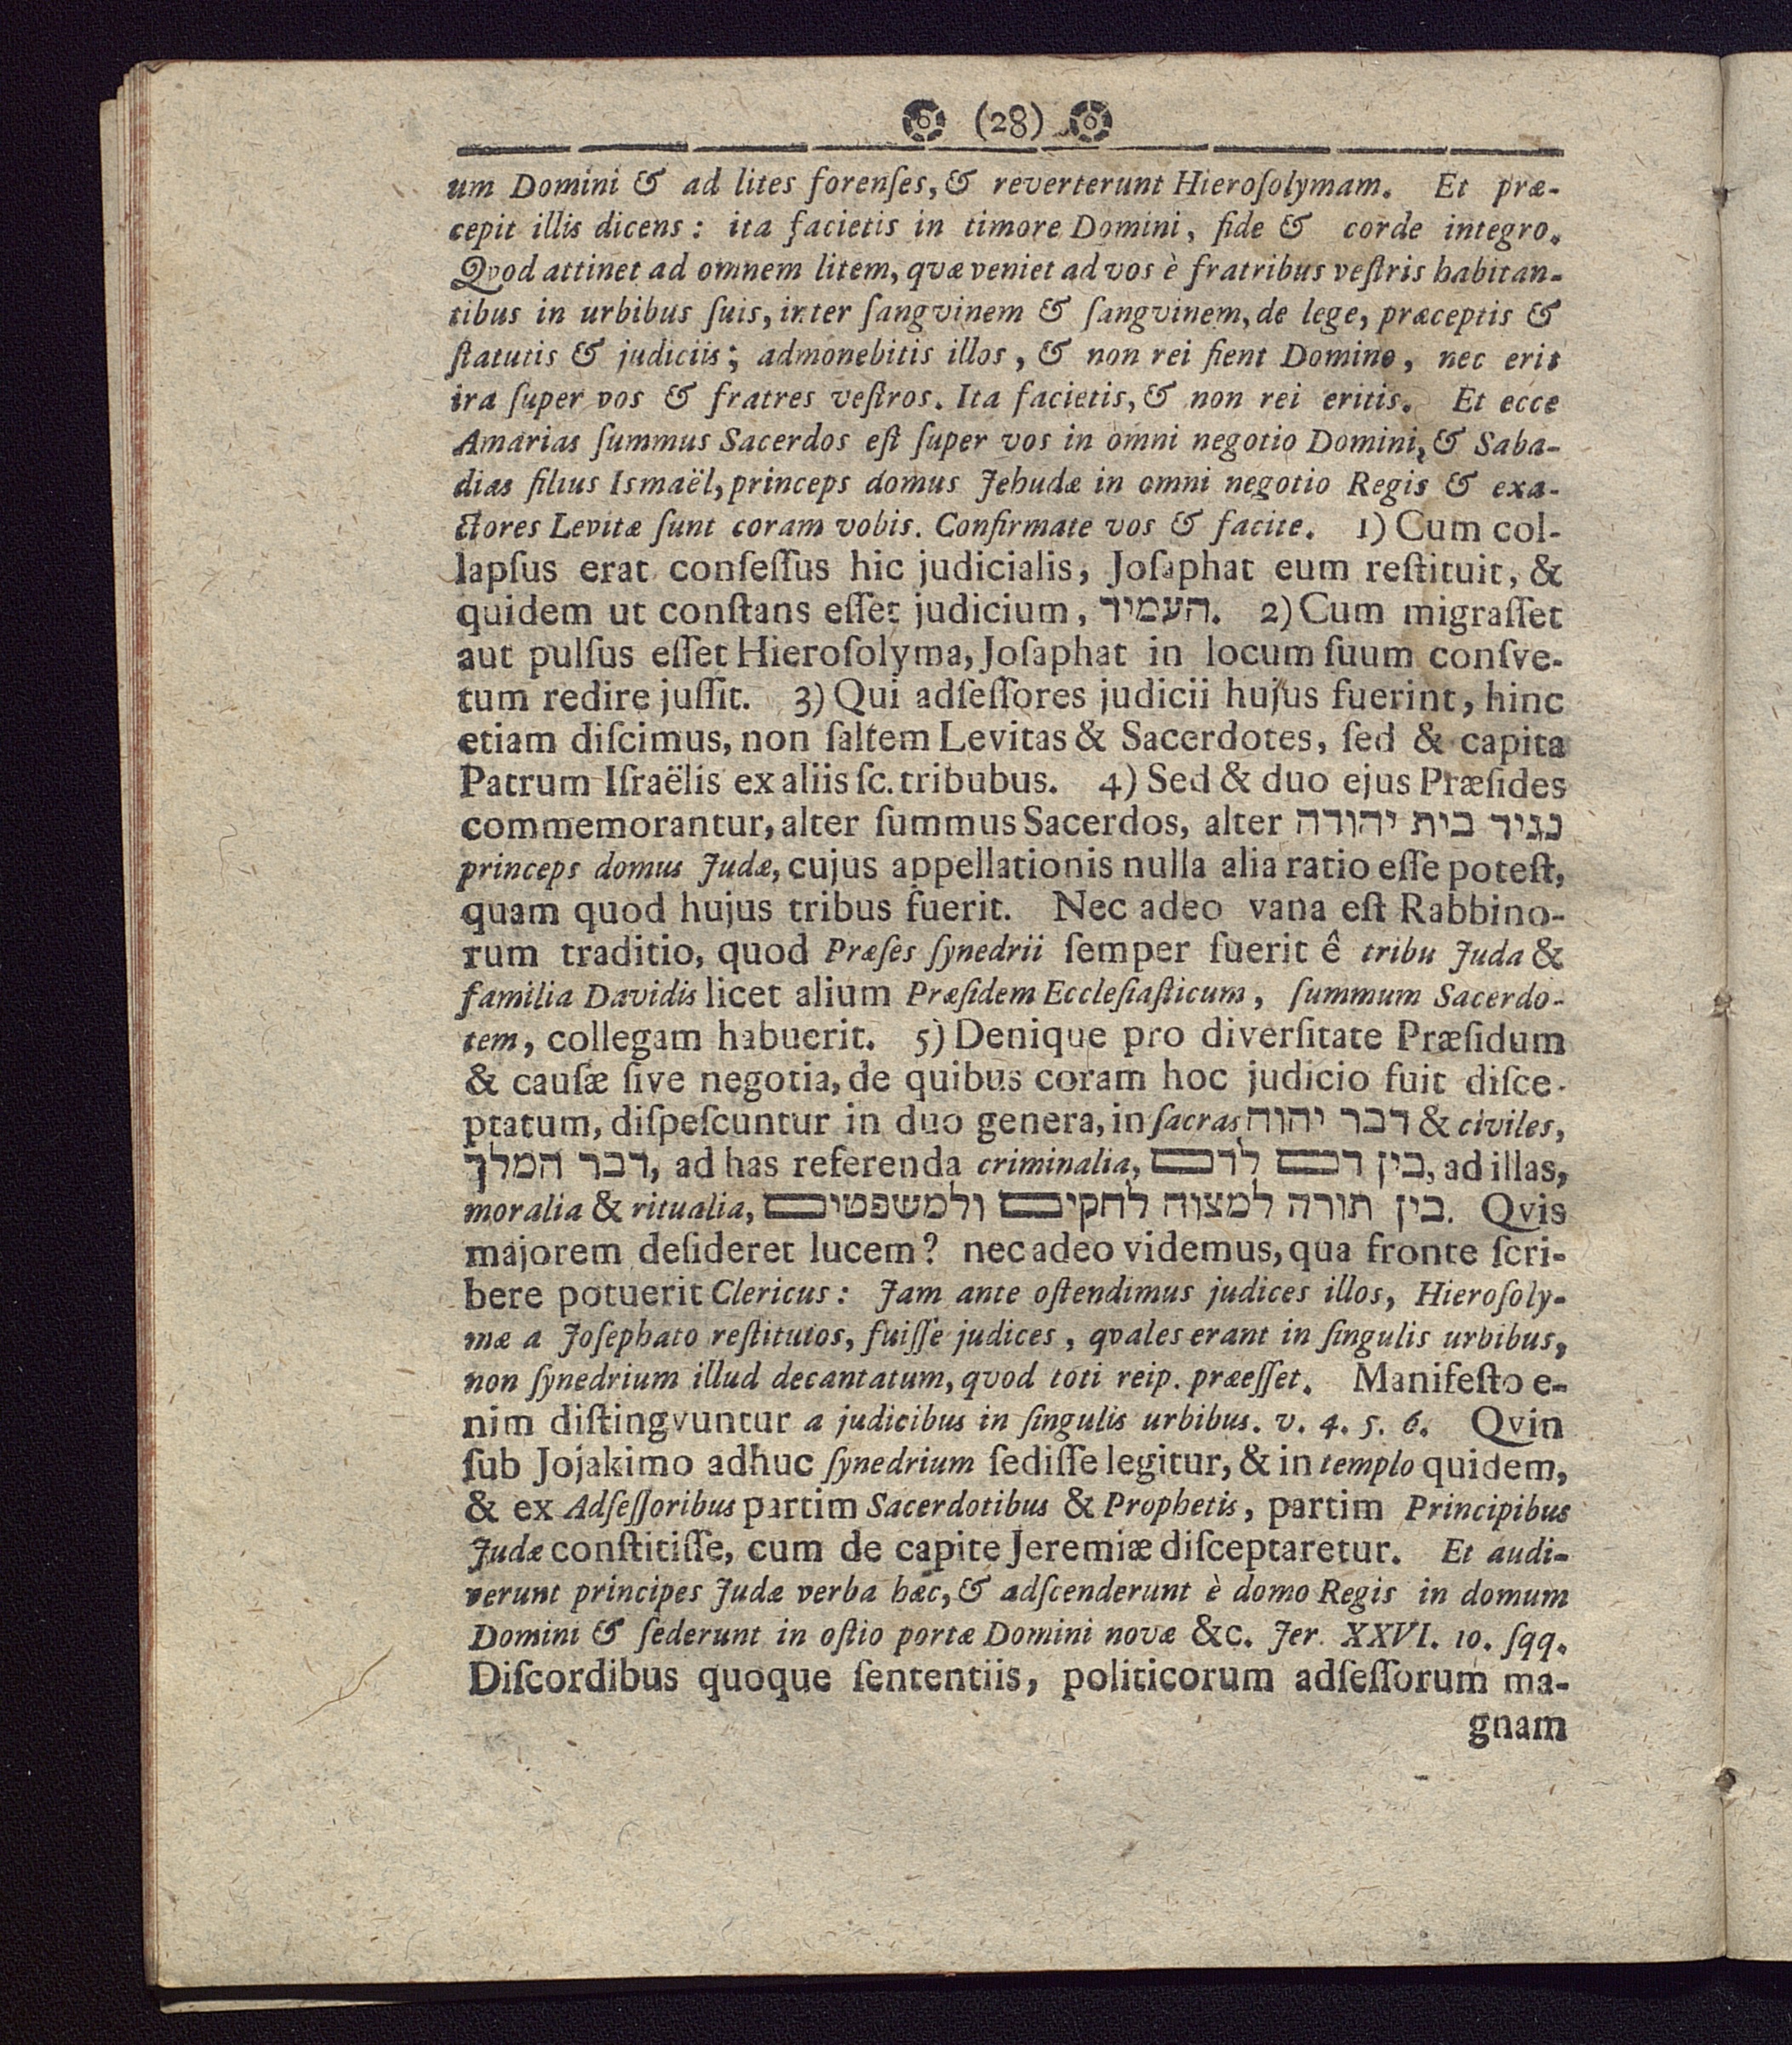 (28)
um Domini & ad lites forenſes, & reverterunt Hieroſolymam. Et præ-
cepit illis dicens: ita facietis in timore Domini, fide & corde integro.
Qvod attinet ad omnem litem, qvæ veniet ad vos è fratribus veſtris habitan-
tibus in urbibus ſuis, inter ſangvinem & ſangvinem, de lege, præceptis &
ſtatutis & judiciis; admonebitis illos, & non rei fient Domino, nec erit
ira ſuper vos & fratres veſtros. Ita facietis, & non rei eritis. Et ecce
Amarias ſummus Sacerdos eſt ſuper vos in omni negotio Domini, & Saba-
dias filius Ismaël, princeps domus Jehudæ in omni negotio Regis & exa-
ctores Levitæ ſunt coram vobis. Confirmate vos & facite. 1) Cum col-
lapſus erat conſeſſus hic judicialis, Joſaphat eum reſtituit, &
quidem ut conſtans eſſet judicium, העמיד. 2) Cum migraſſet
aut pulſus eſſet Hieroſolyma, Joſaphat in locum ſuum conſve-
tum redire juſſit. 3) Qui adſeſſores judicii hujus fuerint, hinc
etiam diſcimus, non ſaltem Levitas & Sacerdotes, ſed & capita
Patrum Iſraëlis ex aliis ſc. tribubus. 4) Sed & duo ejus Præſides
commemorantur, alter ſummus Sacerdos, alter נגיד בית יהודה
princeps domus Judæ, cujus appellationis nulla alia ratio eſſe poteſt,
quam quod hujus tribus fuerit. Nec adeo vana eſt Rabbino-
rum traditio, quod Præſes ſynedrii ſemper fuerit ê tribu Juda &
familia Davidis licet alium Præſidem Eccleſiaſticum, ſummum Sacerdo-
tem, collegam habuerit. 5) Denique pro diverſitate Præſidum
& cauſæ ſive negotia, de quibus coram hoc judicio fuit diſce-
ptatum, diſpeſcuntur in duo genera, in ſacras דבר יהוה & civiles,
דבר המלך, ad has referenda criminalia, בין דם לדם, ad illas,
moralia & ritualia, בין תורה למצוה לחקים ולמשפטים. Qvis
majorem deſideret lucem? nec adeo videmus, qua fronte ſcri-
bere potuerit Clericus: Jam ante oſtendimus judices illos, Hieroſoly-
mæ a Joſephato reſtitutos, fuiſſe judices, qvales erant in ſingulis urbibus,
non ſynedrium illud decantatum, qvod toti reip. præeſſet. Manifeſto e-
nim diſtingvuntur a judicibus in ſingulis urbibus. v. 4. 5. 6. Qvin
ſub Jojakimo adhuc ſynedrium ſediſſe legitur, & in templo quidem,
& ex Adſeſſoribus partim Sacerdotibus & Prophetis, partim Principibus
Judæ conſtitiſſe, cum de capite Jeremiæ diſceptaretur. Et audi-
verunt principes Judæ verba hæc, & adſcenderunt è domo Regis in domum
Domini & ſederunt in oſtio portæ Domini novæ &c. Jer. XXVI. 10. ſqq.
Diſcordibus quoque ſententiis, politicorum adſeſſorum ma-
gnam